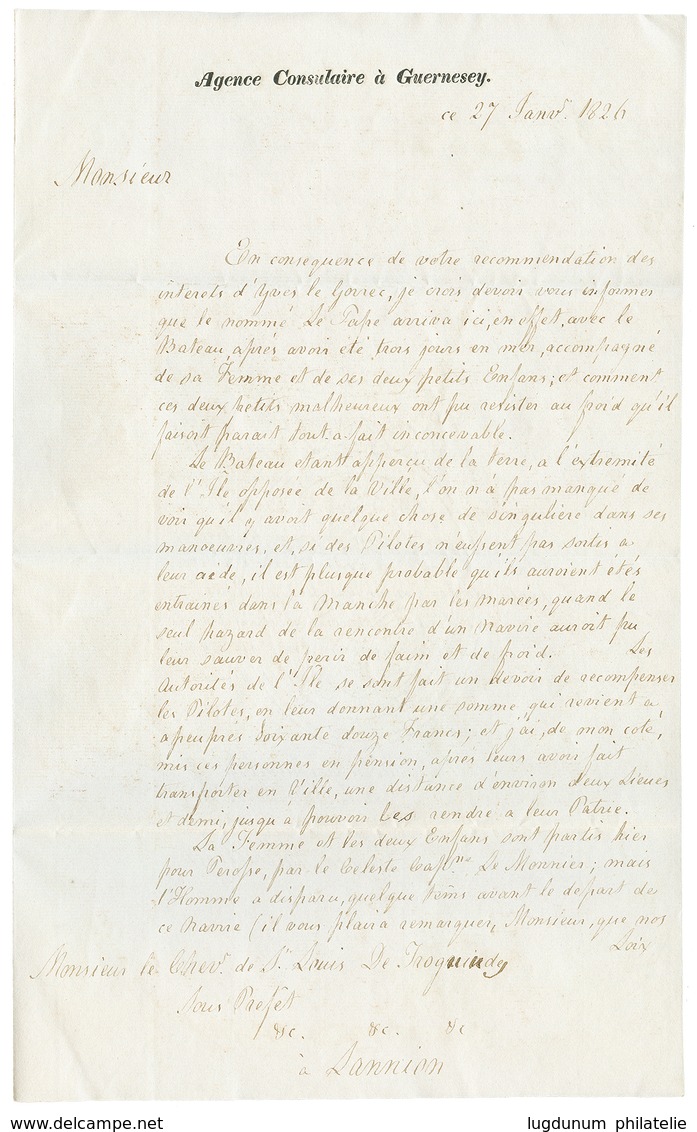 Agence Consulaire à Guernesey.
ce 27 Janvr. 1826
Monsieur
En consequence de votre recommendation des
interets d'Yves le Gorrec, je crois devoir vous informer
que le nommé Le Pape arriva ici, en effet, avec le
Bateau, après avoir été trois jours en mer, accompagné
de sa Femme et de ses deux petits Enfans; et comment
ces deux petits malheureux ont pu resister au froid qu'il
faisoit parait tout-a-fait inconcevable.
Le Bateau etant apperçu de la terre, a l'extremité
de l'Île opposée de la Ville, l'on n'a pas manqué de
voir qu'il y avoit quelque chose de singuliere dans ses
manoeuvres, et, si des Pilotes n'eussent pas sortis a
leur aide, il est plusque probable qu'ils auroient étés
entrainés dans la Manche par les marées, quand le
seul hazard de la rencontre d'un Navire auroit pu
leur sauver de perir de faim et de froid. Les
Autorités de l'Île se sont fait un devoir de recompenser
les Pilotes, en leur donnant une somme qui revient a
apeuprès Soixante douze Francs; et j'ai, de mon coté,
mis ces personnes en pension, après leurs avoir fait
transporter en Ville, une distance d'environ deux Lieues
et demi, jusqu'à pouvoir les rendre a leur Patrie.
La Femme et les deux Enfans sont partis hier
pour Perosse, par le Celeste Captne. Le Monnier; mais
l'Homme a disparu, quelque tems avant le depart de
ce navire (il vous plaira remarquer, Monsieur, que nos
Loix
Monsieur le Chevr. de St. Louis De Troguindy
Sous Prefet
&c. &c. &c
à Lannion
www.delcampe.net
lugdunum philatelie